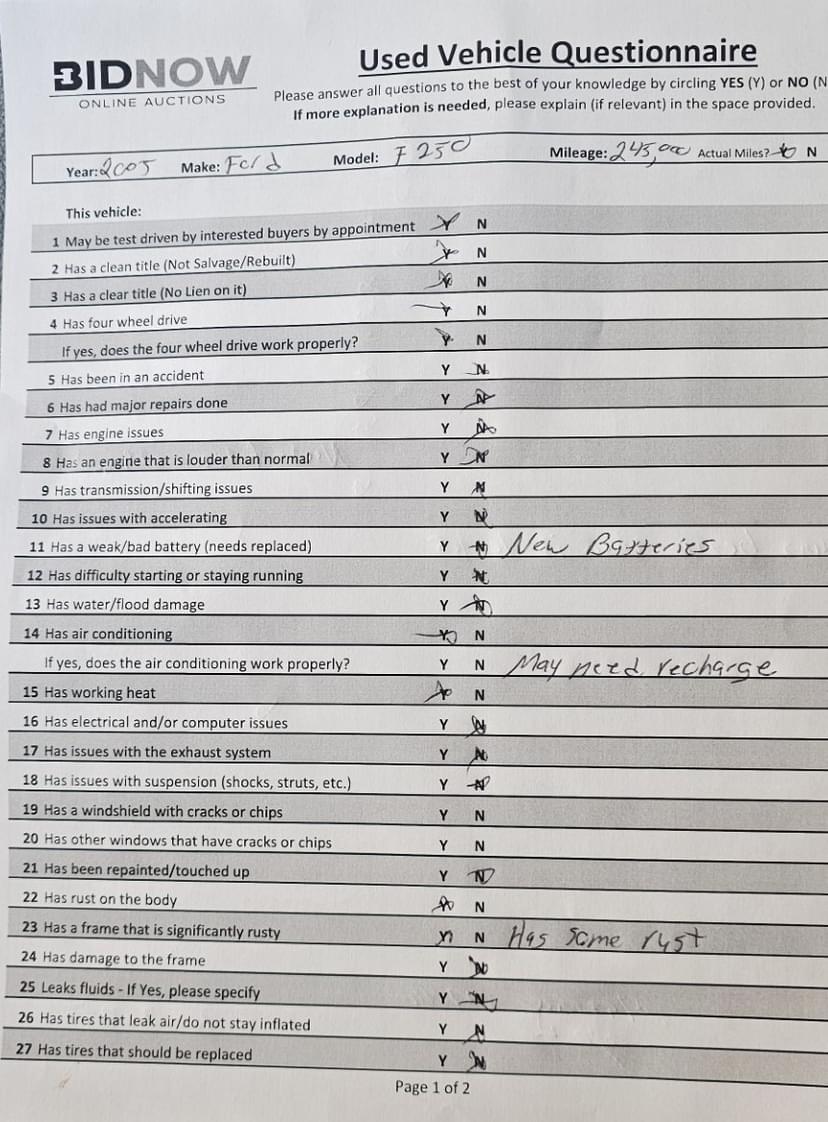 BIDNOW
ONLINE AUCTIONS
Used Vehicle Questionnaire
Please answer all questions to the best of your knowledge by circling YES (Y) or NO (N
If more explanation is needed, please explain (if relevant) in the space provided.
Year: 2005 Make: Ford Model: F 250 Mileage: 245,000 Actual Miles? Y N
This vehicle:
1 May be test driven by interested buyers by appointment Y N
2 Has a clean title (Not Salvage/Rebuilt) Y N
3 Has a clear title (No Lien on it) Y N
4 Has four wheel drive Y N
If yes, does the four wheel drive work properly? Y N
5 Has been in an accident Y N
6 Has had major repairs done Y N
7 Has engine issues Y N
8 Has an engine that is louder than normal Y N
9 Has transmission/shifting issues Y N
10 Has issues with accelerating Y N
11 Has a weak/bad battery (needs replaced) Y N New Batteries
12 Has difficulty starting or staying running Y N
13 Has water/flood damage Y N
14 Has air conditioning Y N
If yes, does the air conditioning work properly? Y N May need recharge
15 Has working heat Y N
16 Has electrical and/or computer issues Y N
17 Has issues with the exhaust system Y N
18 Has issues with suspension (shocks, struts, etc.) Y N
19 Has a windshield with cracks or chips Y N
20 Has other windows that have cracks or chips Y N
21 Has been repainted/touched up Y N
22 Has rust on the body Y N
23 Has a frame that is significantly rusty Y N Has some rust
24 Has damage to the frame Y N
25 Leaks fluids - If Yes, please specify Y N
26 Has tires that leak air/do not stay inflated Y N
27 Has tires that should be replaced Y N
Page 1 of 2